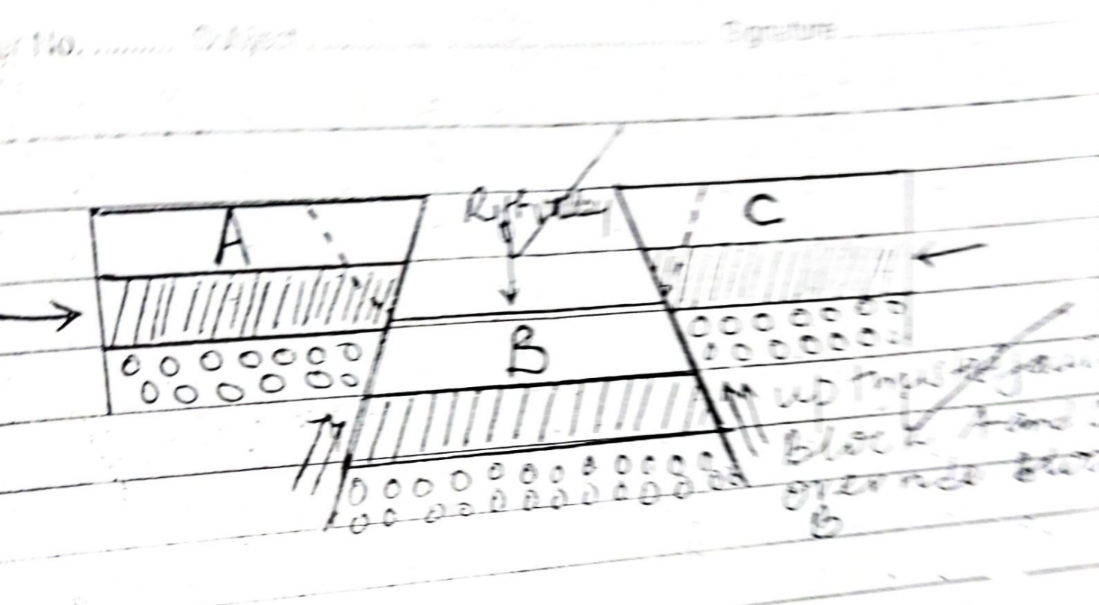 No. ......... Subject ............ Signature
A
Rift valley
C
B
up thrust
Block A and
override Block
B